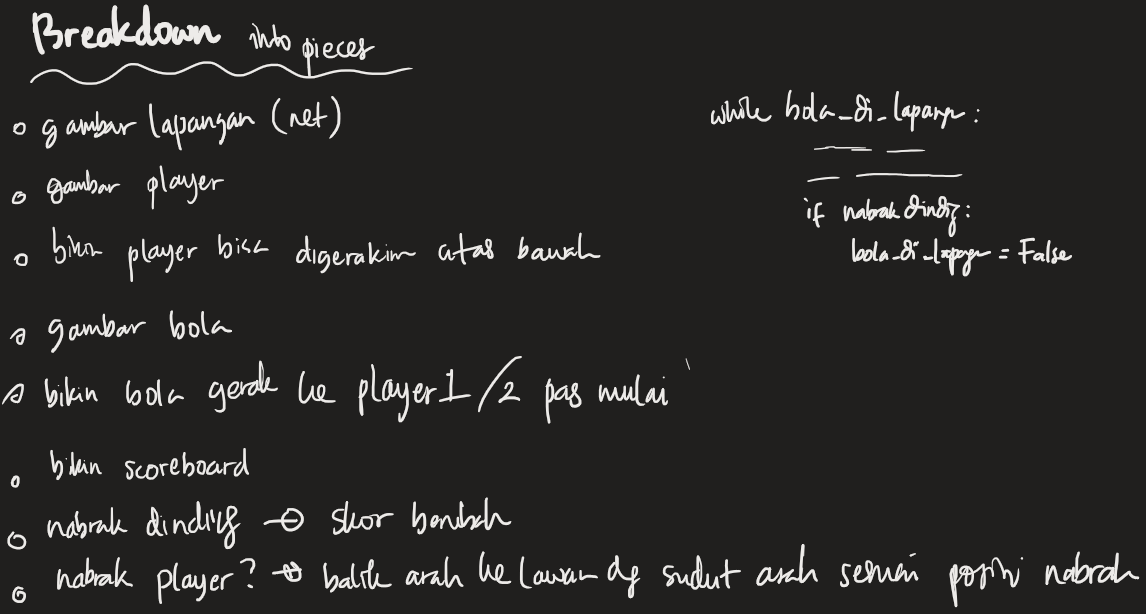 Breakdown into pieces
gambar lapangan (net)
gambar player
bikin player bisa digerakin atas bawah
gambar bola
bikin bola gerak ke player 1/2 pas mulai
bikin scoreboard
nabrak dinding → skor bambah
nabrak player? → balik arah ke lawan dg sudut arah sesuai posisi nabrak
while bola_di_lapangan:
if nabrak dinding:
bola_di_lapangan = False